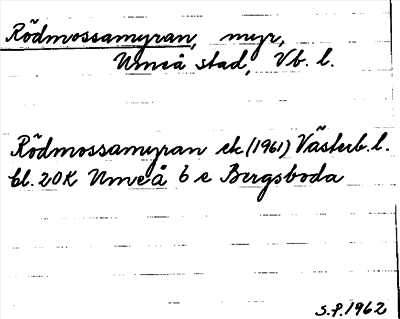 Rödmossamyran, myr,
Umeå stad, Vb. l.
Rödmossamyran ek (1961) Västerb. l.
bl. 20K Umeå 6 e Bergsboda
S.P. 1962